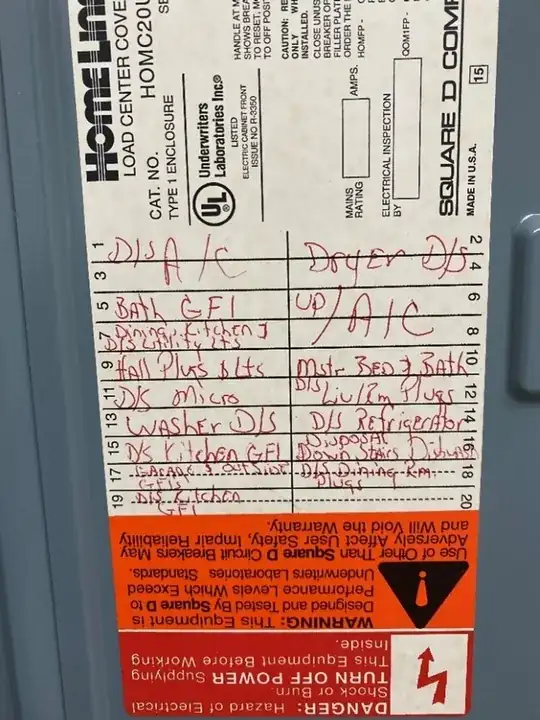 HOMELINE
LOAD CENTER COVE
CAT. NO. HOMC20U
SE
TYPE 1 ENCLOSURE
UL
Underwriters
Laboratories Inc.®
LISTED
ELECTRIC CABINET FRONT
ISSUE NO. R-3350
HANDLE AT M
SHOWS BREA
TO RESET, MO
TO OFF POSIT
CAUTION: RE
ONLY WH
INSTALLED.
CLOSE UNUS
BREAKER OP
FILLER PLAT
ORDER THE
HOMFP -
QOM1FP -
MAINS
RATING
AMPS.
ELECTRICAL INSPECTION
BY
SQUARE D COMP
MADE IN U.S.A.
15
1 D/S A/C 2
3 Dryer D/S 4
5 Bath GFI 6
UP/A/C
7 Dining, Kitchen & 8
D/S Utility Lts
9 Hall Plugs & Lts Mstr BED & Bath 10
11 D/S Micro D/S Liv/Rm Plugs 12
13 WASHER D/S D/S Refrigerator 14
15 D/S Kitchen GFI Disposal 16
Down Stairs Dishwash
17 GARAGE & OUTSIDE D/S Dining Rm. 18
GFIs Plugs
19 D/S Kitchen 20
GFI
WARNING: This Equipment is
Designed and Tested By Square D to
Performance Levels Which Exceed
Underwriters Laboratories Standards.
Use of Other Than Square D Circuit Breakers May
Adversely Affect User Safety, Impair Reliability
and Will Void the Warranty.
DANGER: Hazard of Electrical
Shock or Burn.
TURN OFF POWER Supplying
This Equipment Before Working
Inside.